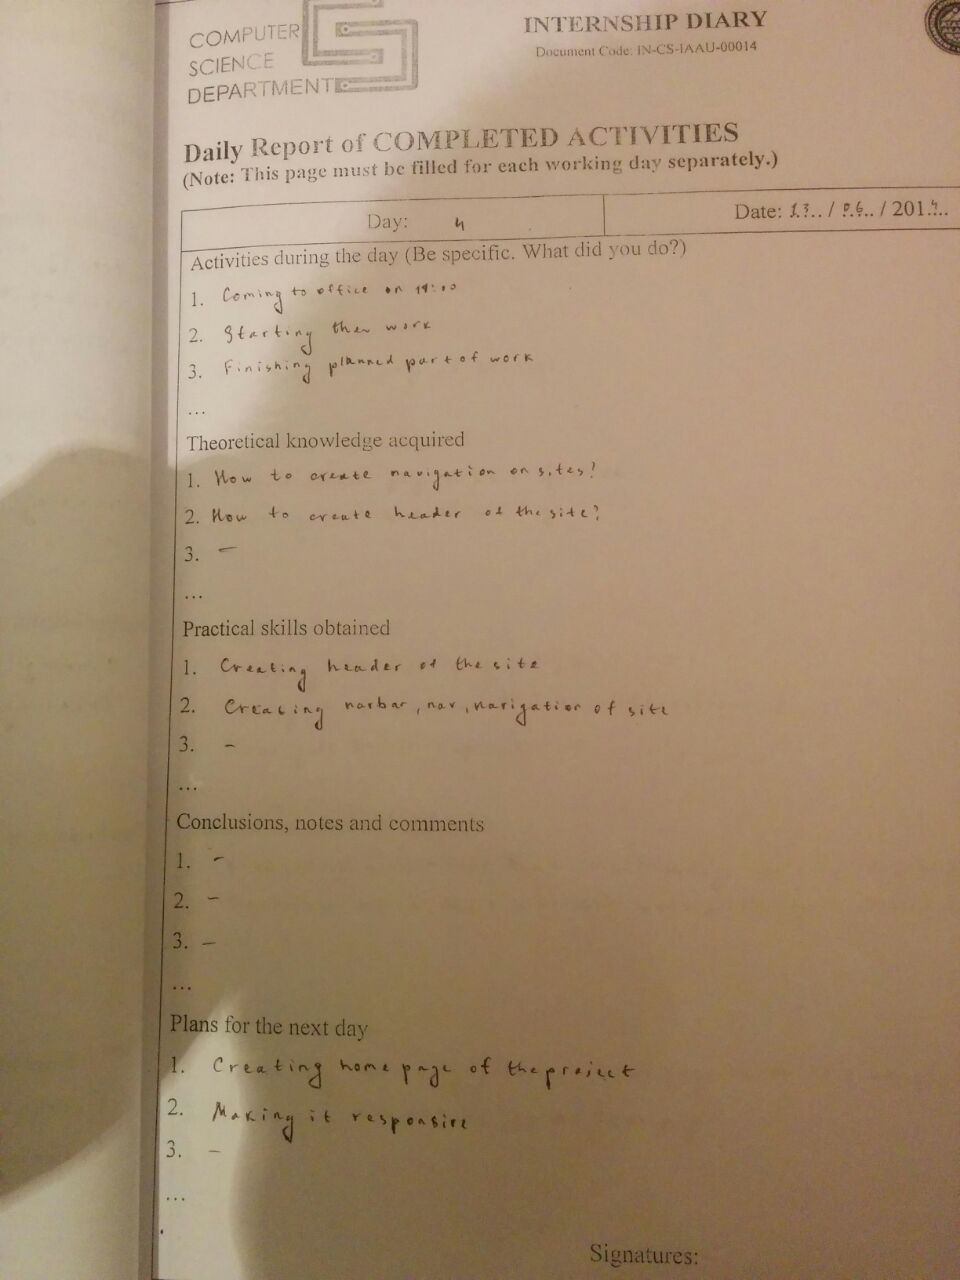 COMPUTER
SCIENCE
DEPARTMENT
INTERNSHIP DIARY
Document Code: IN-CS-IAAU-00014
Daily Report of COMPLETED ACTIVITIES
(Note: This page must be filled for each working day separately.)
Day: 4
Date: 13.. / 06.. / 201
Activities during the day (Be specific. What did you do?)
1. Coming to office on
2. Starting then work
3. Finishing planned part of work
...
Theoretical knowledge acquired
1. How to create navigation on sites?
2. How to create header of the site?
3. –
...
Practical skills obtained
1. Creating header of the site
2. Creating navbar, nav, navigation of site
3. –
...
Conclusions, notes and comments
1. –
2. –
3. –
...
Plans for the next day
1. Creating home page of the project
2. Making it responsive
3. –
...
Signatures: